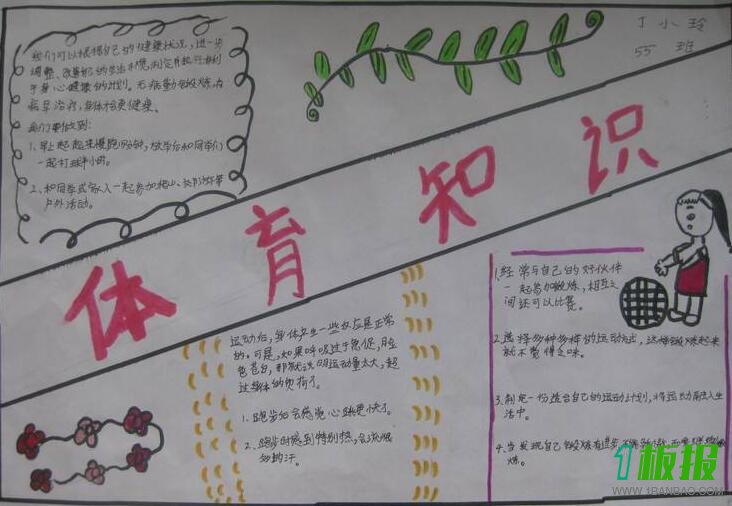 丁小玲
55班
我们可以根据自己的健康状况,进一步
调整、改善的生活环境,制定有利
于身心健康的计划。无病勤锻炼,有
病早治疗,身体才会更健康。
我们要做到:
1、早上起起来慢跑10分钟,放学后和同学们
一起打球半小时。
2、和同学或家人一起参加爬山、等
户外活动。
体育知识
运动后,身体产生一些反应是正常
的。可是,如果呼吸过于急促,脸
色苍白,那就说明运动量太大,超
过身体的负荷了。
1、跑步后会感觉心跳更快了。
2、跑步时感到特别热,会流
汗。
1、经常与自己的好伙伴
一起参加锻炼,相互之
间还可以比赛。
2、选择多种多样的运动方式,这样锻炼起来
就不觉得乏味。
3、制定一份适合自己的运动计划,将运动融入生
活中。
4、当发现自己锻炼有进步
炼。
1板报
WWW.1BANBAO.COM